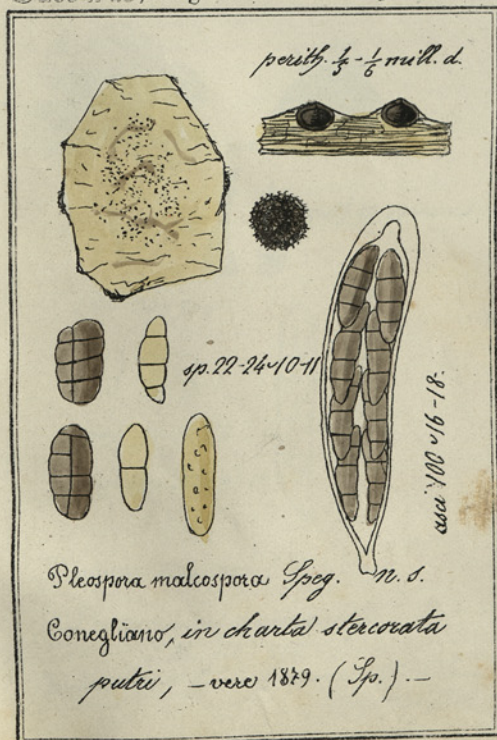 perith. 1/5 - 1/6 mill. d.
sp. 22-24 ~ 10-11
asci 100 ~ 16-18.
Pleospora malcospora Speg. n. s.
Conegliano, in charta stercorata
putri, – vere 1879. (Sp.). –